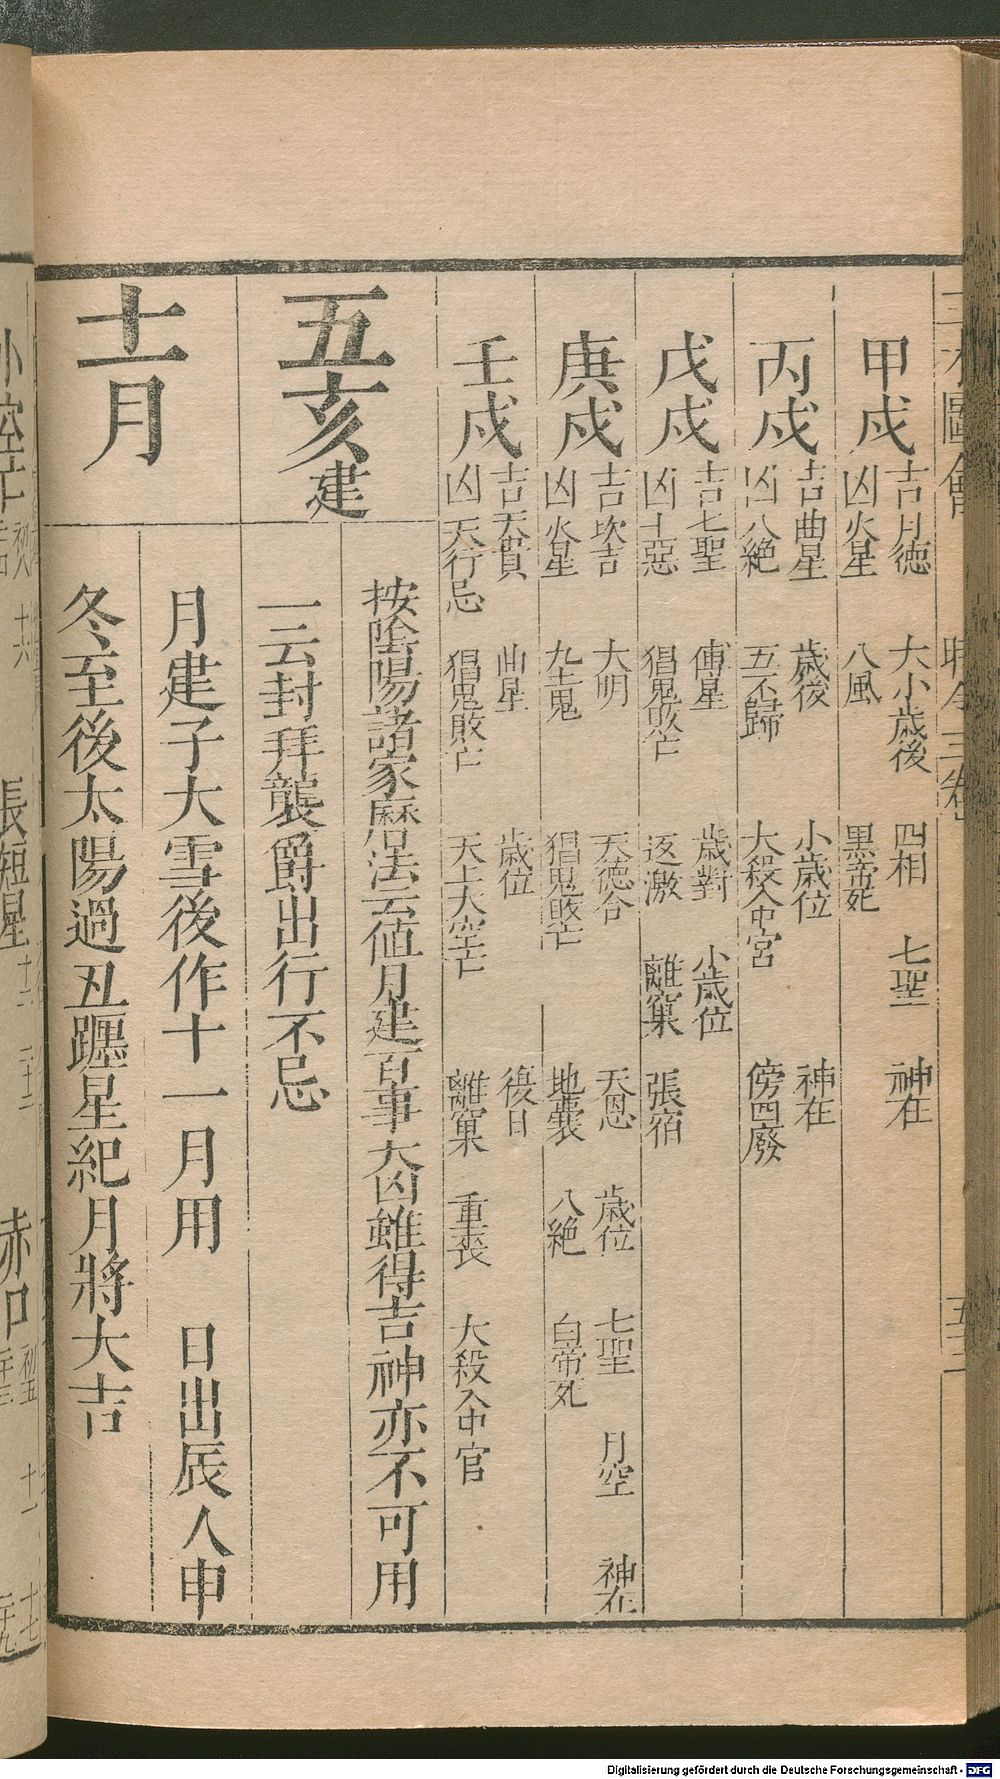 三才圖會 時令三卷
甲戌
吉月德 大小歲後 四相 七聖 神在
凶火星 八風 黑帝死
丙戌
吉曲星 歲後 小歲位 神在
凶八絶 五不歸 大殺入中宮 傍四廢
戊戌
吉七聖 傳星 歲對 小歲位
凶十惡 猖鬼敗亡 返激 離窠 張宿
庚戌
吉坎吉 大明 天德合 天恩 歲位 七聖 月空 神在
凶火星 九土鬼 猖鬼敗亡 地囊 八絶 白帝死
壬戌
吉天貴 曲星 歲位 復日
凶天行忌 猖鬼敗亡 天上大空亡 離窠 重喪 大殺入中官
五亥建
按隂陽諸家曆法云値月建百事大凶雖得吉神亦不可用
一云封拜襲爵出行不忌
十一月
月建子大雪後作十一月用 日出辰入申
冬至後太陽過丑躔星紀月將大吉
小空亡
長短星
赤口
Digitalisierung gefördert durch die Deutsche Forschungsgemeinschaft - DFG